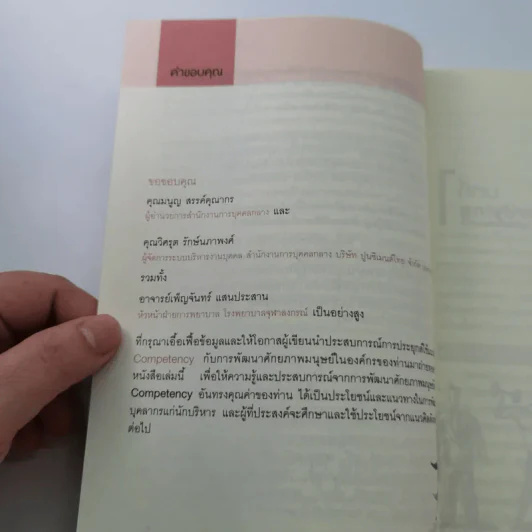 คำขอบคุณ
ขอขอบคุณ
คุณมนูญ สรรค์คุณากร
ผู้อำนวยการสำนักงานการบุคคลกลาง และ
คุณวิศรุต รักษ์นภาพงศ์
ผู้จัดการระบบบริหารงานบุคคล สำนักงานการบุคคลกลาง บริษัท ปูนซิเมนต์ไทย จำกัด
รวมทั้ง
อาจารย์เพ็ญจันทร์ แสนประสาน
หัวหน้าฝ่ายการพยาบาล โรงพยาบาลจุฬาลงกรณ์ เป็นอย่างสูง
ที่กรุณาเอื้อเฟื้อข้อมูลและให้โอกาสผู้เขียนนำประสบการณ์การประยุกต์ใช้
Competency กับการพัฒนาศักยภาพมนุษย์ในองค์กรของท่านมาถ่ายทอด
หนังสือเล่มนี้ เพื่อให้ความรู้และประสบการณ์จากการพัฒนาศักยภาพมนุษย์
Competency อันทรงคุณค่าของท่าน ได้เป็นประโยชน์และแนวทางในการ
บุคลากรแก่นักบริหาร และผู้ที่ประสงค์จะศึกษาและใช้ประโยชน์จากแนวคิด
ต่อไป